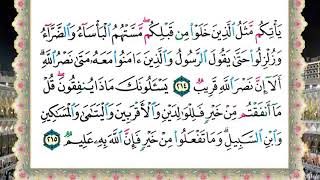 يَأْتِكُم مَّثَلُ ٱلَّذِينَ خَلَوْا۟ مِن قَبْلِكُم ۖ مَّسَّتْهُمُ ٱلْبَأْسَآءُ وَٱلضَّرَّآءُ
وَزُلْزِلُوا۟ حَتَّىٰ يَقُولَ ٱلرَّسُولُ وَٱلَّذِينَ ءَامَنُوا۟ مَعَهُۥ مَتَىٰ نَصْرُ ٱللَّهِ ۗ
أَلَآ إِنَّ نَصْرَ ٱللَّهِ قَرِيبٌ ٢١٤ يَسْـَٔلُونَكَ مَاذَا يُنفِقُونَ ۖ قُلْ
مَآ أَنفَقْتُم مِّنْ خَيْرٍ فَلِلْوَٰلِدَيْنِ وَٱلْأَقْرَبِينَ وَٱلْيَتَٰمَىٰ وَٱلْمَسَٰكِينِ
وَٱبْنِ ٱلسَّبِيلِ ۗ وَمَا تَفْعَلُوا۟ مِنْ خَيْرٍ فَإِنَّ ٱللَّهَ بِهِۦ عَلِيمٌ ٢١٥